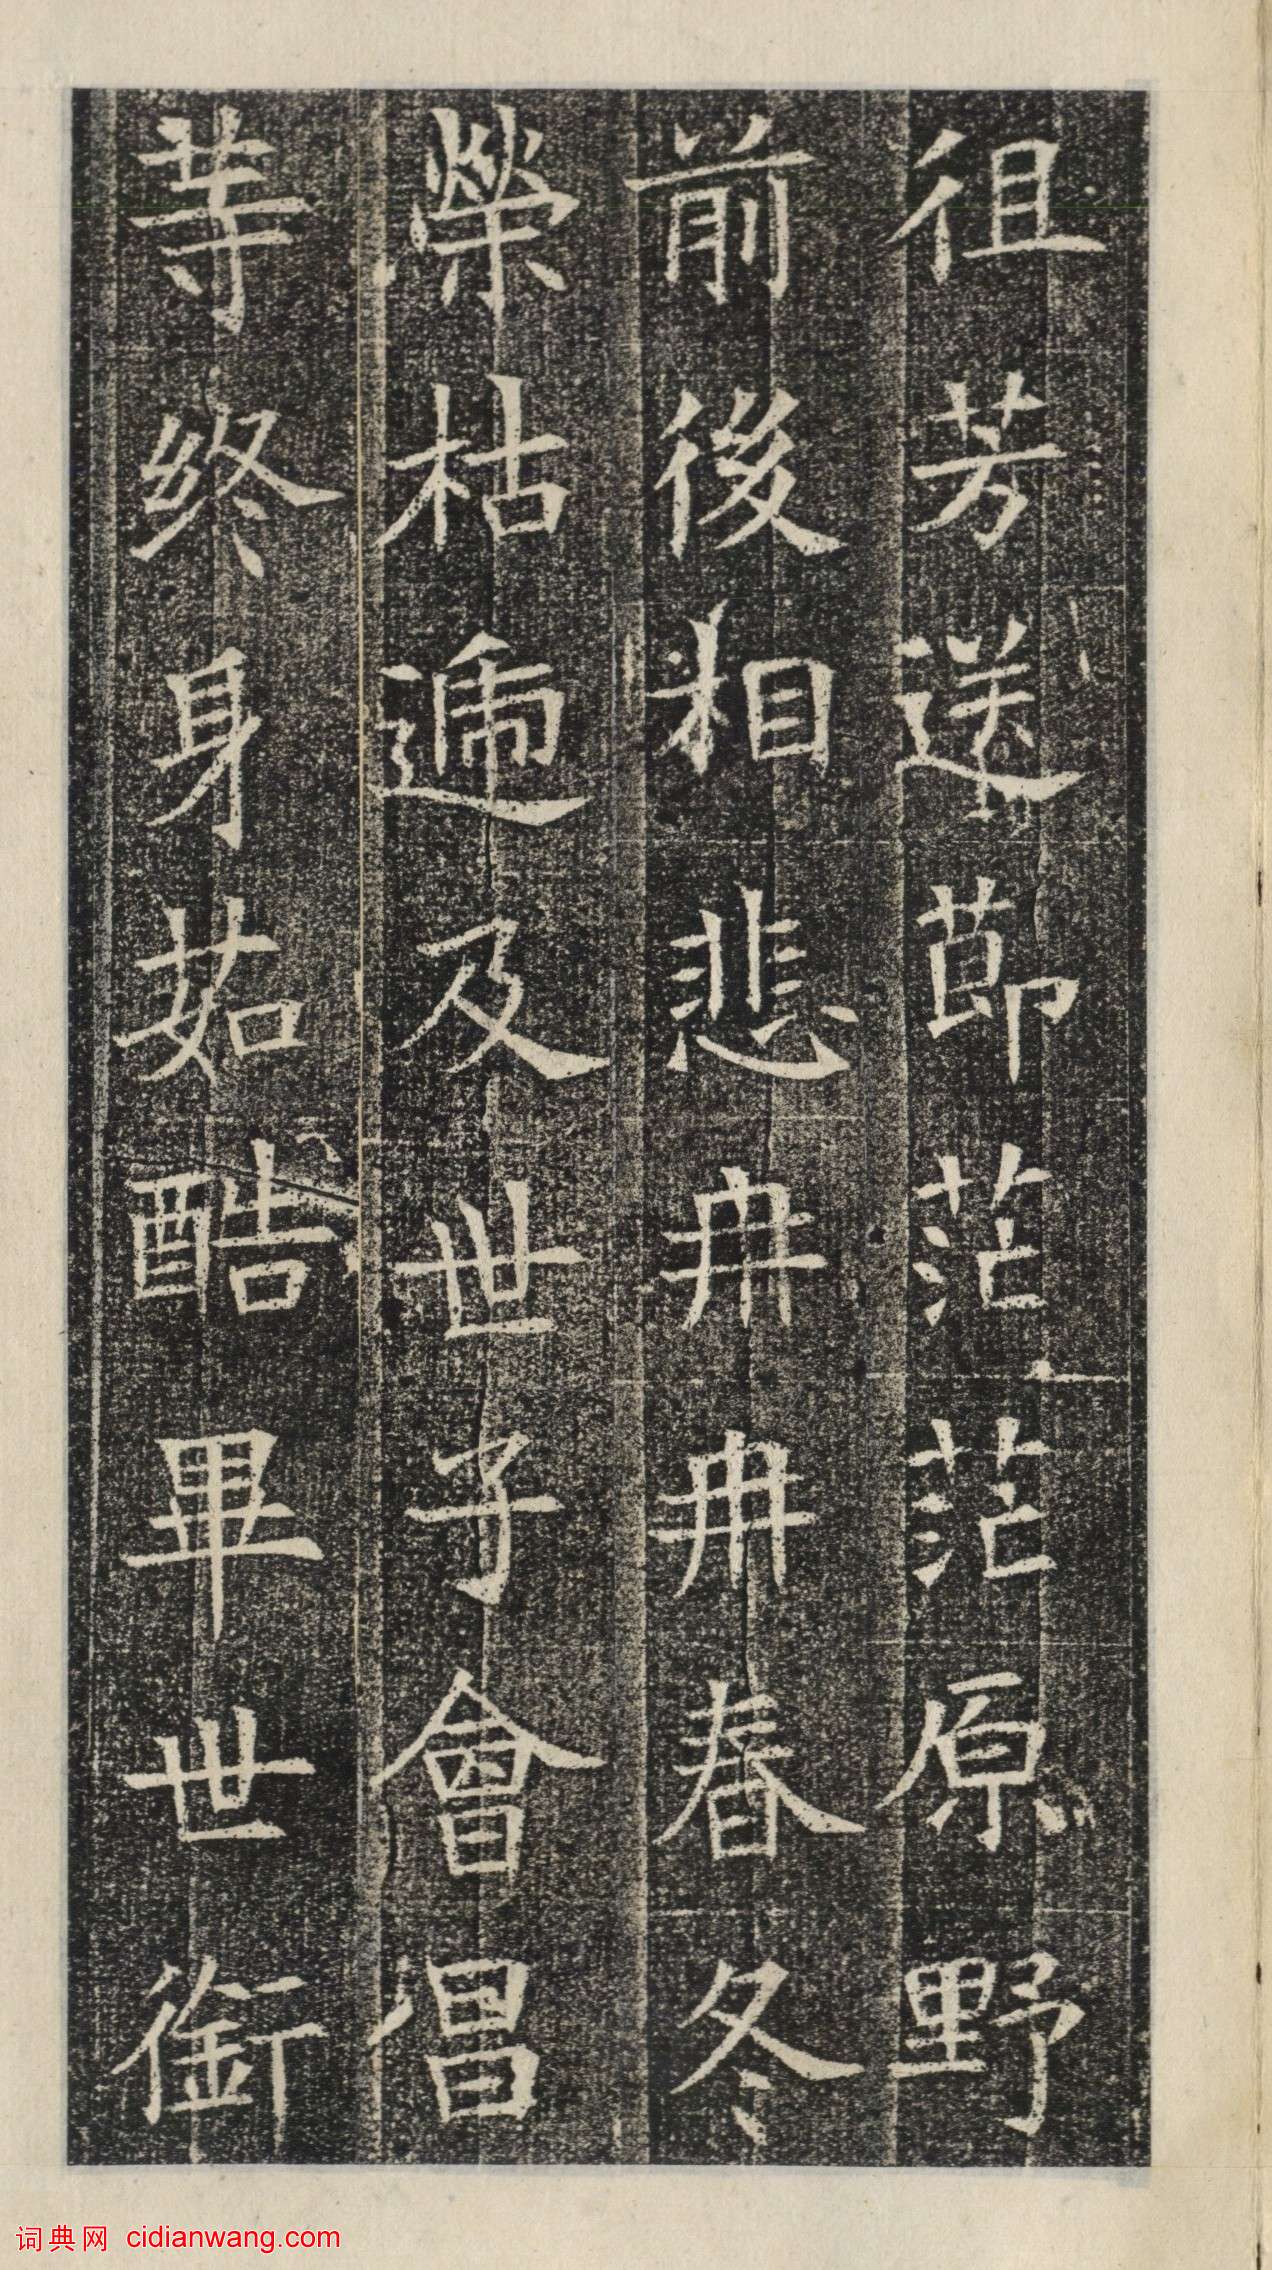 徂芳送節茫茫原野
前後相悲冉冉春冬
榮枯遞及世子會倡
等終身茹酷畢世銜
词典网 cidianwang.com